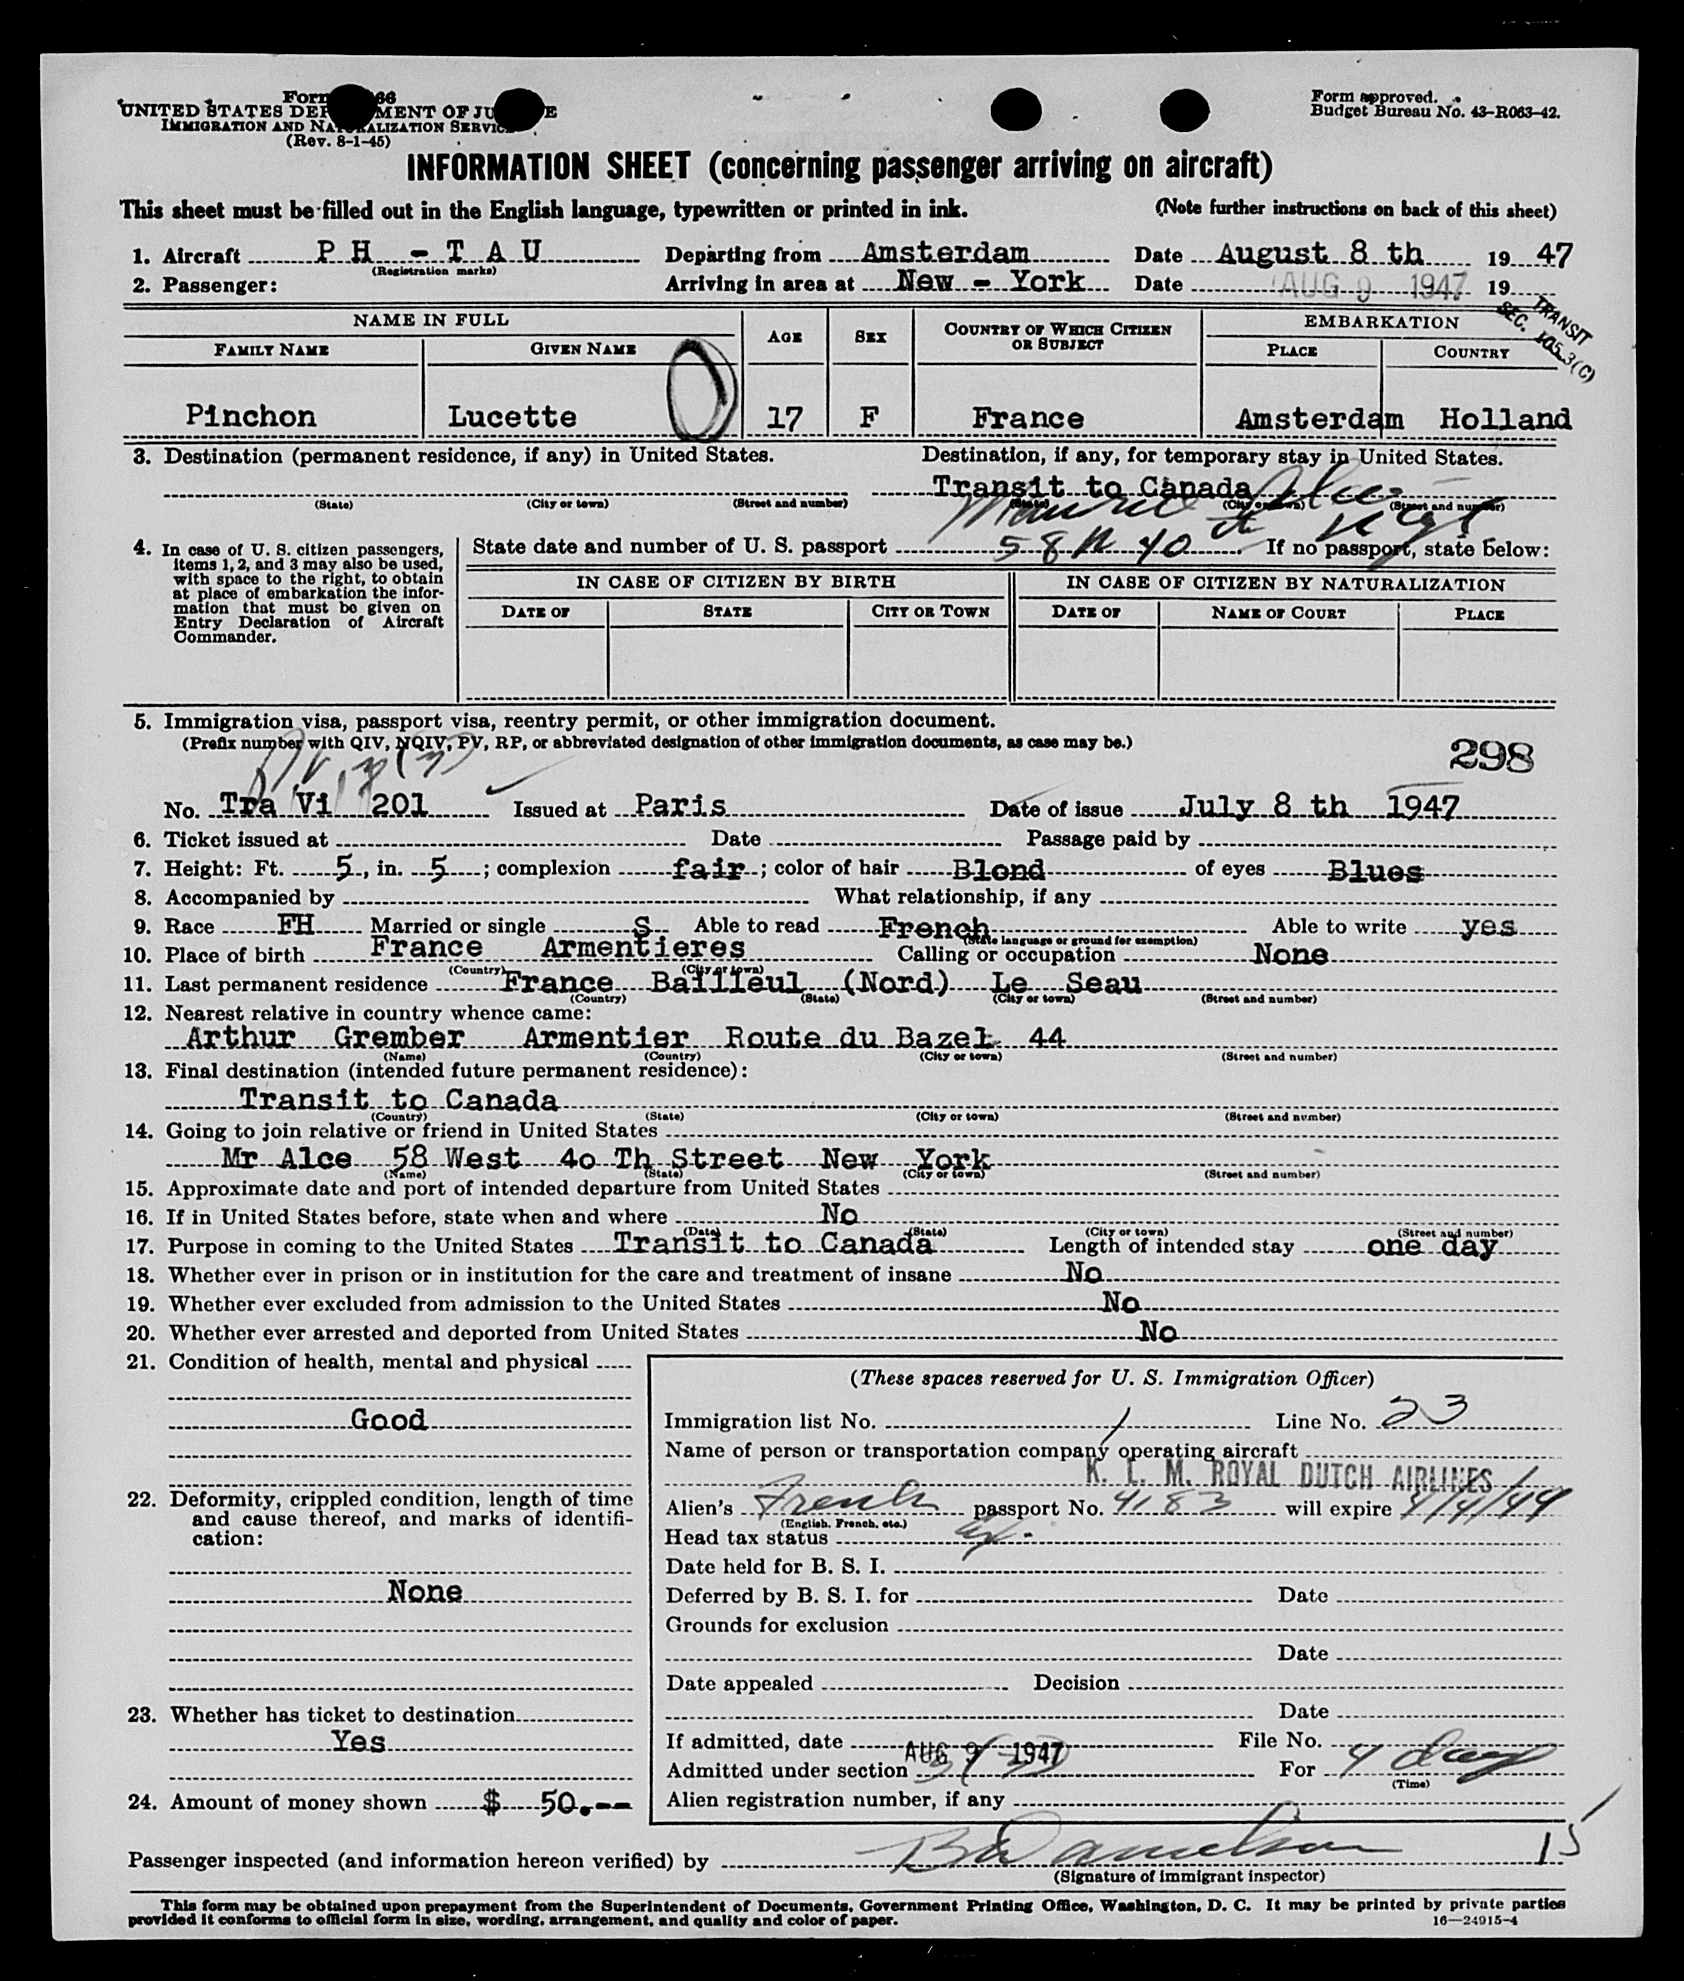 Form 66
UNITED STATES DEP MENT OF JU E
IMMIGRATION AND NATURALIZATION SERVICE
(Rev. 8-1-45)
Form approved.
Budget Bureau No. 43-R063-42.
INFORMATION SHEET (concerning passenger arriving on aircraft)
This sheet must be filled out in the English language, typewritten or printed in ink. (Note further instructions on back of this sheet)
1. Aircraft P H - T A U Departing from Amsterdam Date August 8 th 19 47
(Registration marks)
2. Passenger: Arriving in area at New - York Date AUG 9 1947 19
TRANSIT
SEC. 105.3(C)
NAME IN FULL AGE SEX COUNTRY OF WHICH CITIZEN OR SUBJECT EMBARKATION
FAMILY NAME GIVEN NAME PLACE COUNTRY
Pinchon Lucette 17 F France Amsterdam Holland
3. Destination (permanent residence, if any) in United States. Destination, if any, for temporary stay in United States.
Transit to Canada
(State) (City or town) (Street and number) (State) (City or town) (Street and number)
4. In case of U. S. citizen passengers, items 1, 2, and 3 may also be used, with space to the right, to obtain at place of embarkation the information that must be given on Entry Declaration of Aircraft Commander.
State date and number of U. S. passport 58 W 40 th If no passport, state below:
IN CASE OF CITIZEN BY BIRTH IN CASE OF CITIZEN BY NATURALIZATION
DATE OF STATE CITY OR TOWN DATE OF NAME OF COURT PLACE
5. Immigration visa, passport visa, reentry permit, or other immigration document.
(Prefix number with QIV, NQIV, PV, RP, or abbreviated designation of other immigration documents, as case may be.)
298
No. Tra Vi 201 Issued at Paris Date of issue July 8 th 1947
6. Ticket issued at Date Passage paid by
7. Height: Ft. 5, in. 5; complexion fair; color of hair Blond of eyes Blues
8. Accompanied by What relationship, if any
9. Race FH Married or single S Able to read French Able to write yes
(State language or ground for exemption)
10. Place of birth France Armentieres Calling or occupation None
(Country) (City or town)
11. Last permanent residence France Bailleul (Nord) Le Seau
(Country) (State) (City or town) (Street and number)
12. Nearest relative in country whence came:
Arthur Grember Armentier Route du Bazel 44
(Name) (Country) (City or town) (Street and number)
13. Final destination (intended future permanent residence):
Transit to Canada
(Country) (State) (City or town) (Street and number)
14. Going to join relative or friend in United States
Mr Alce 58 West 4o Th Street New York
(Name) (State) (City or town) (Street and number)
15. Approximate date and port of intended departure from United States
16. If in United States before, state when and where No
(Date) (State) (City or town) (Street and number)
17. Purpose in coming to the United States Transit to Canada Length of intended stay one day
18. Whether ever in prison or in institution for the care and treatment of insane No
19. Whether ever excluded from admission to the United States No
20. Whether ever arrested and deported from United States No
21. Condition of health, mental and physical
Good
22. Deformity, crippled condition, length of time and cause thereof, and marks of identification:
None
23. Whether has ticket to destination
Yes
24. Amount of money shown $ 50.--
(These spaces reserved for U. S. Immigration Officer)
Immigration list No. 1 Line No. 23
Name of person or transportation company operating aircraft
K. L. M. ROYAL DUTCH AIRLINES
Alien's French passport No. 4183 will expire
(English, French, etc.)
Head tax status
Date held for B. S. I.
Deferred by B. S. I. for Date
Grounds for exclusion
Date
Date appealed Decision
Date
If admitted, date AUG 9 1947 File No.
Admitted under section 3(3) For 4 days
(Time)
Alien registration number, if any
Passenger inspected (and information hereon verified) by 15
(Signature of immigrant inspector)
This form may be obtained upon prepayment from the Superintendent of Documents, Government Printing Office, Washington, D. C. It may be printed by private parties
provided it conforms to official form in size, wording, arrangement, and quality and color of paper.
16—24915-4